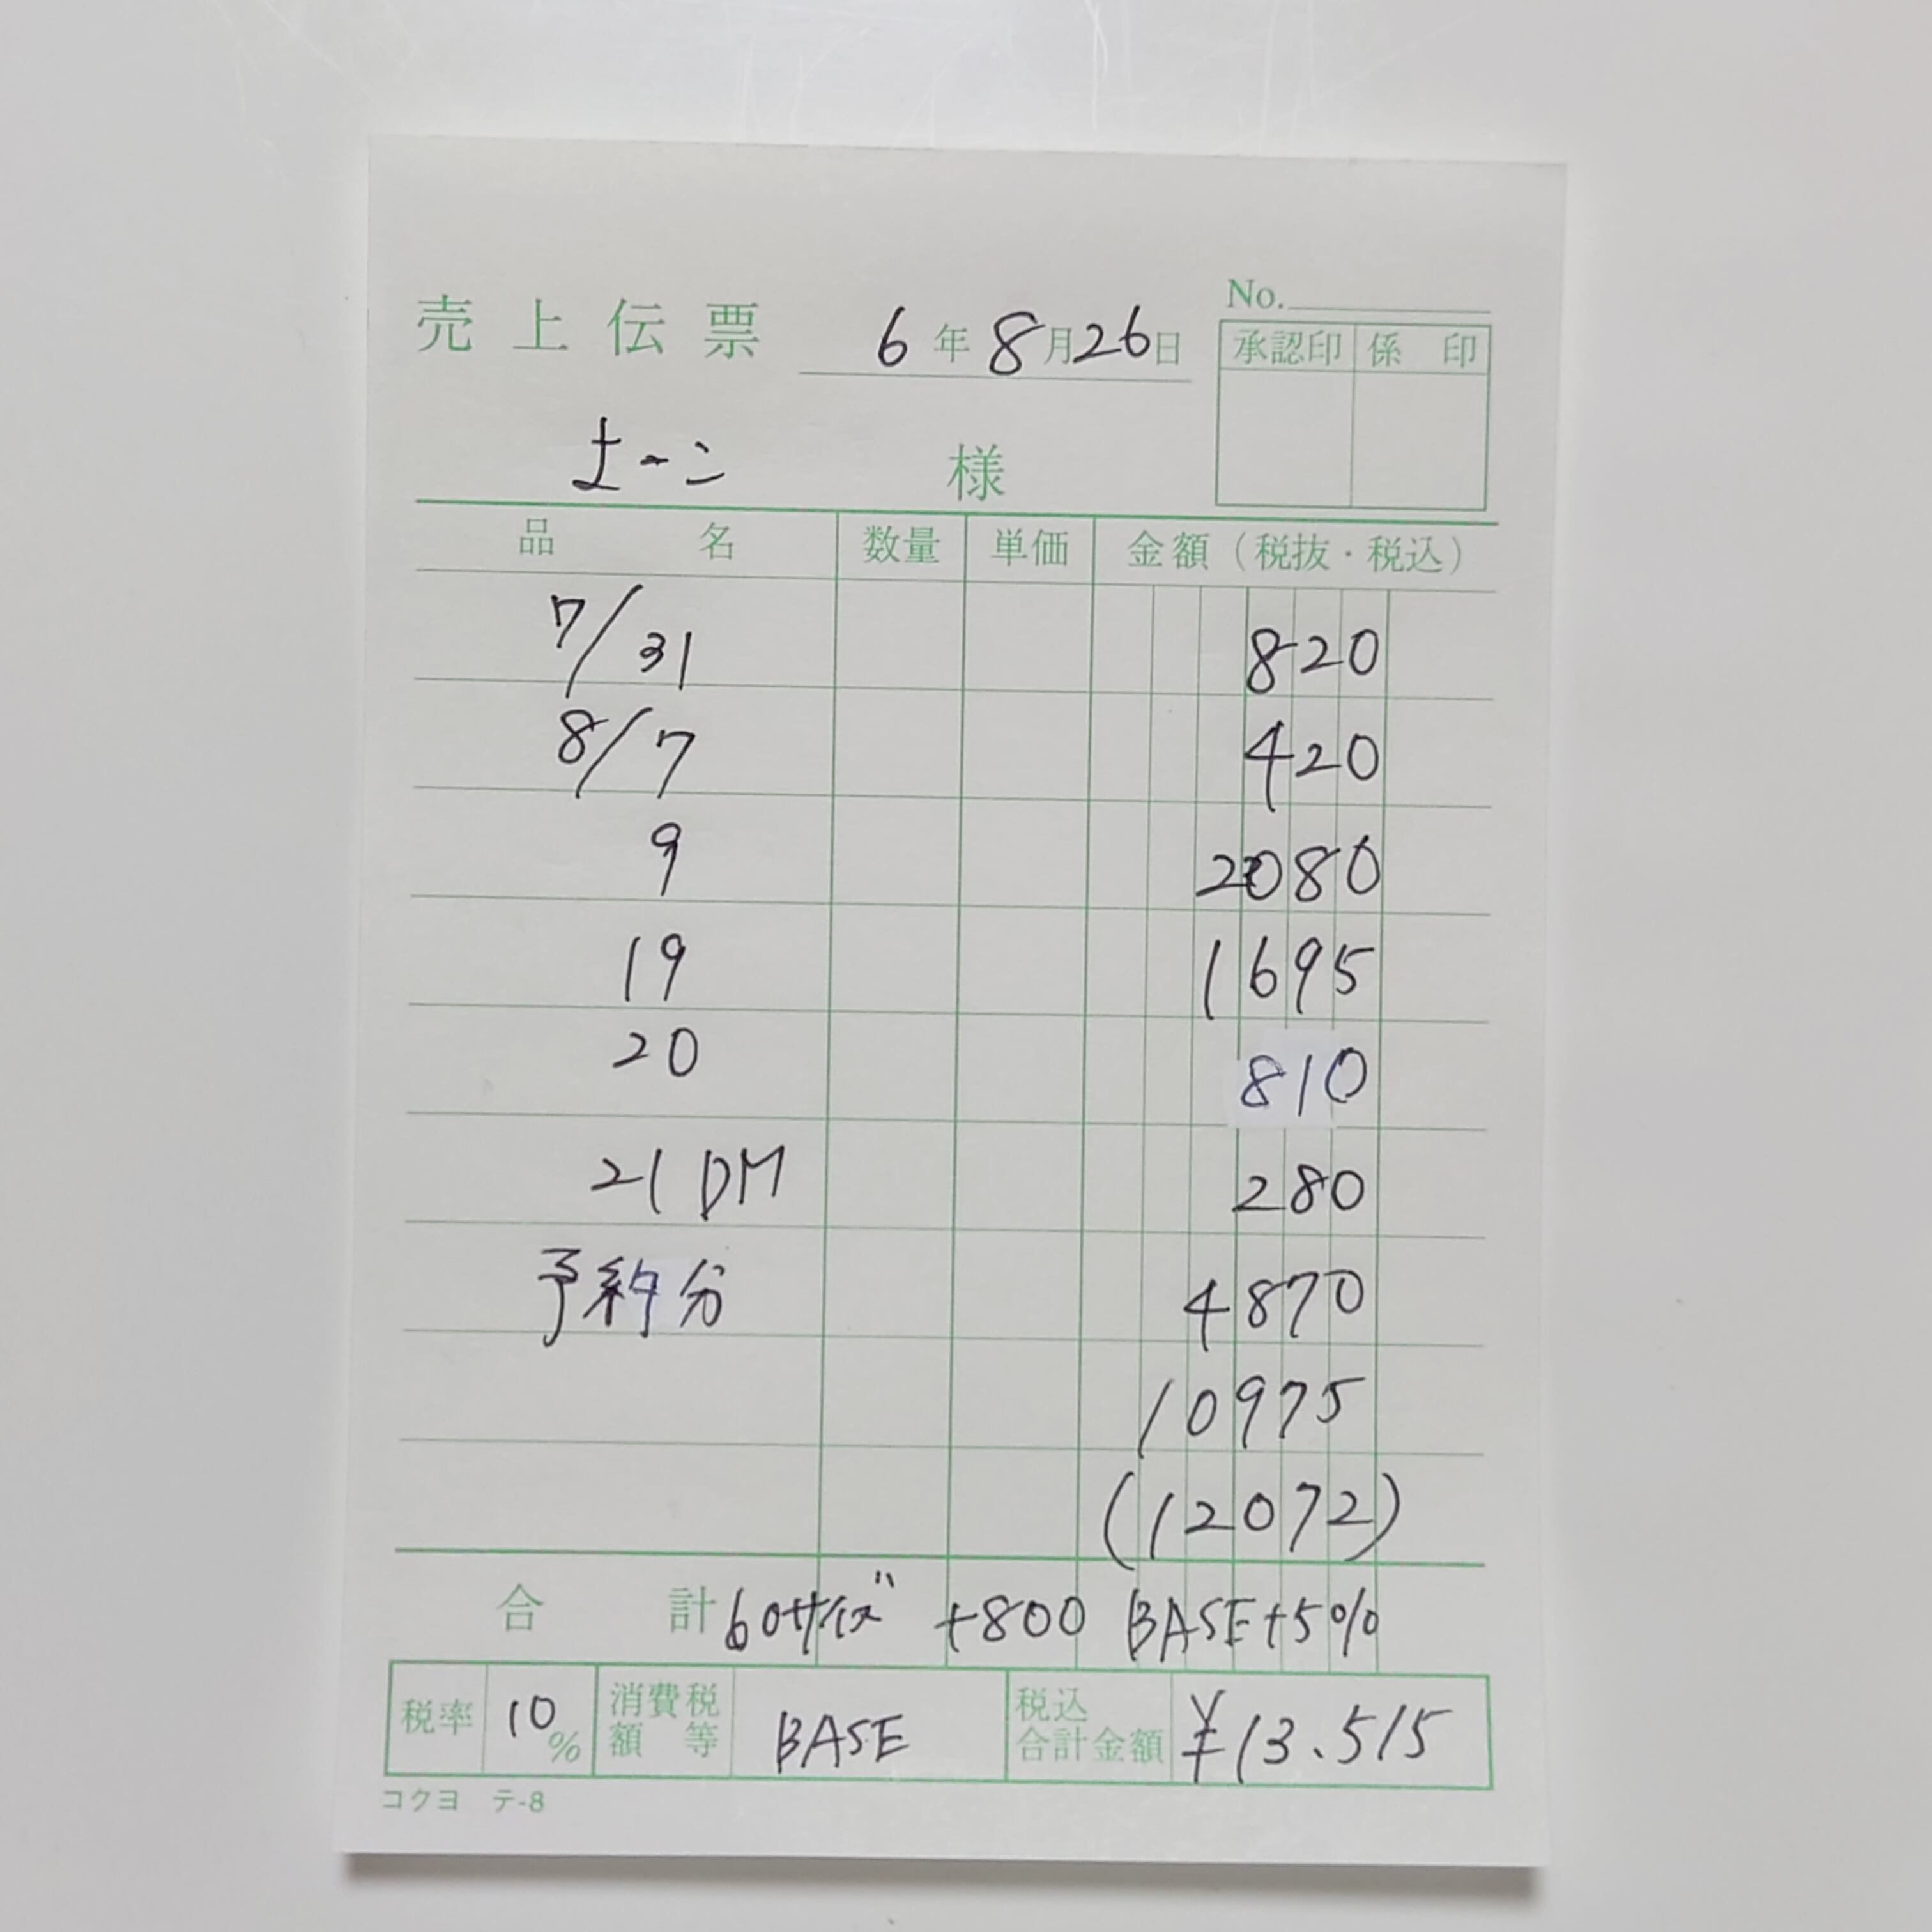 No.
売上伝票 6年8月26日
承認印 係印
様
品名 数量 単価 金額(税抜・税込)
7/31 820
8/7 420
9 2080
19 1695
20 810
21 DM 280
予約分 4870
10975
(12072)
合計 60サイズ +800 BASE+5%
税率 10% 消費税額等 BASE 税込合計金額 ¥13.515
コクヨ テ-8